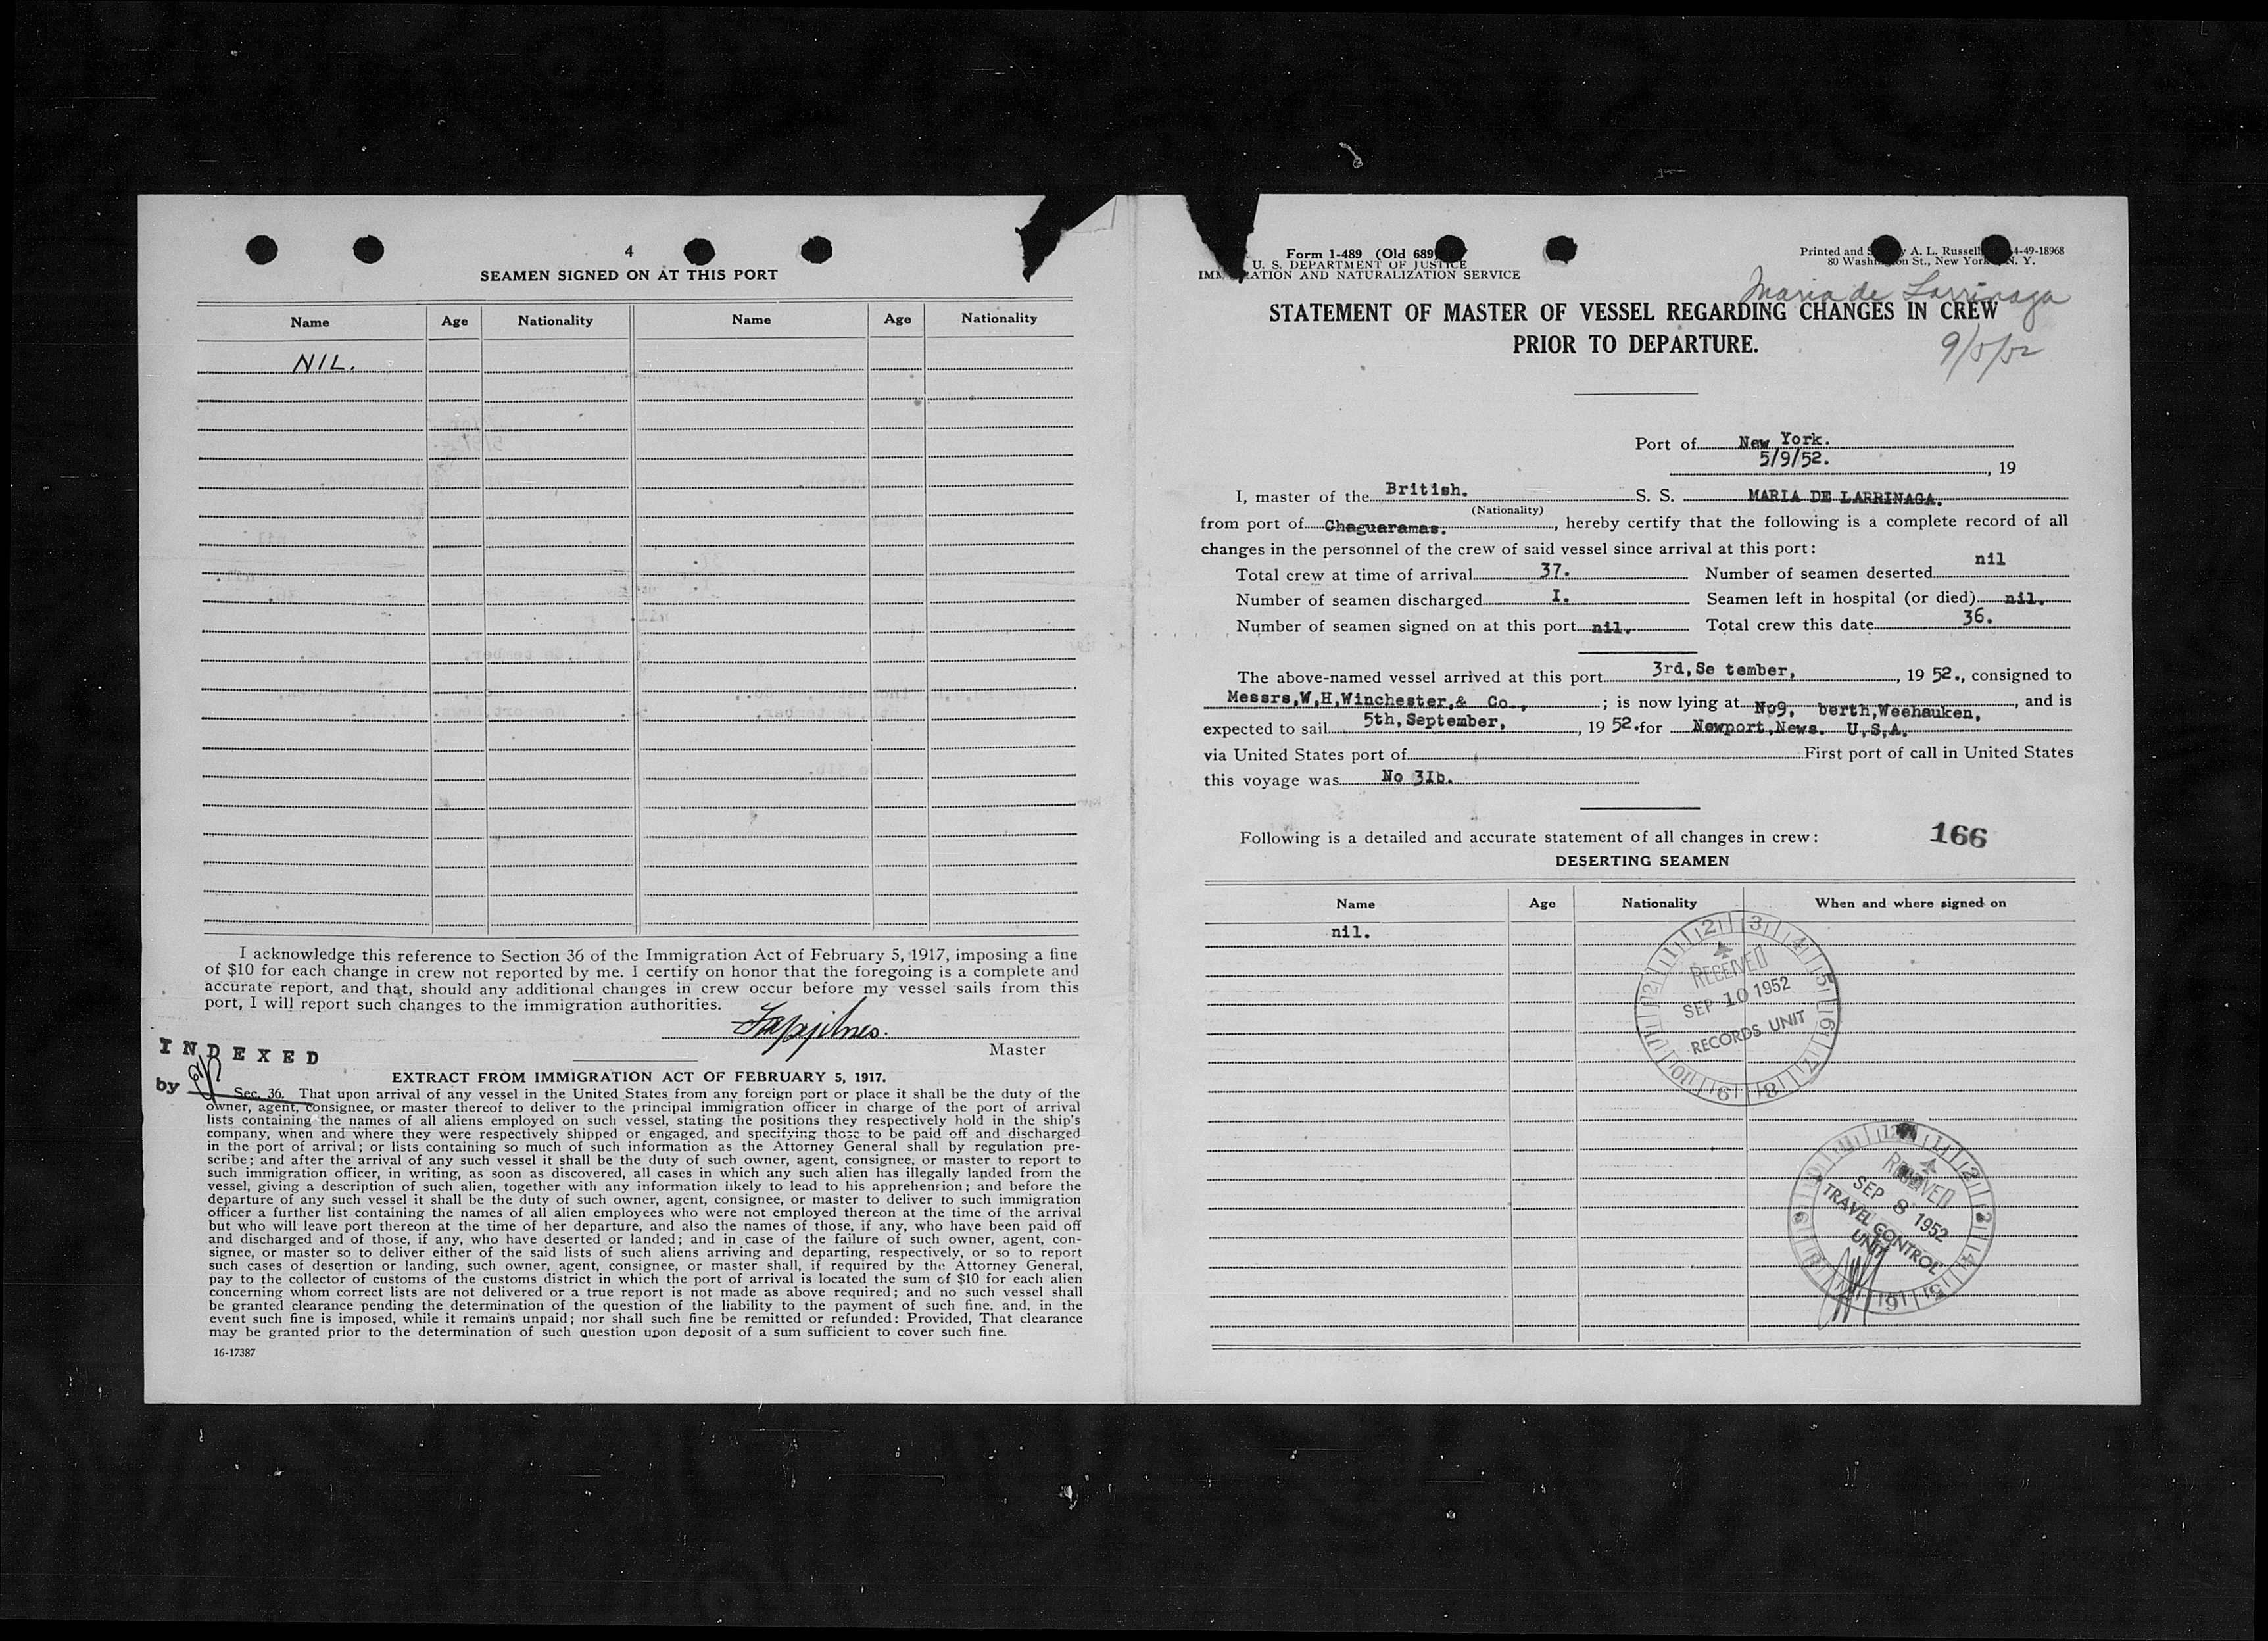 4
SEAMEN SIGNED ON AT THIS PORT
Name Age Nationality Name Age Nationality
NIL.
I acknowledge this reference to Section 36 of the Immigration Act of February 5, 1917, imposing a fine
of $10 for each change in crew not reported by me. I certify on honor that the foregoing is a complete and
accurate report, and that, should any additional changes in crew occur before my vessel sails from this
port, I will report such changes to the immigration authorities.
Master
INDEXED
by
EXTRACT FROM IMMIGRATION ACT OF FEBRUARY 5, 1917.
Sec. 36. That upon arrival of any vessel in the United States from any foreign port or place it shall be the duty of the
owner, agent, consignee, or master thereof to deliver to the principal immigration officer in charge of the port of arrival
lists containing the names of all aliens employed on such vessel, stating the positions they respectively hold in the ship's
company, when and where they were respectively shipped or engaged, and specifying those to be paid off and discharged
in the port of arrival; or lists containing so much of such information as the Attorney General shall by regulation pre-
scribe; and after the arrival of any such vessel it shall be the duty of such owner, agent, consignee, or master to report to
such immigration officer, in writing, as soon as discovered, all cases in which any such alien has illegally landed from the
vessel, giving a description of such alien, together with any information likely to lead to his apprehension; and before the
departure of any such vessel it shall be the duty of such owner, agent, consignee, or master to deliver to such immigration
officer a further list containing the names of all alien employees who were not employed thereon at the time of the arrival
but who will leave port thereon at the time of her departure, and also the names of those, if any, who have been paid off
and discharged and of those, if any, who have deserted or landed; and in case of the failure of such owner, agent, con-
signee, or master so to deliver either of the said lists of such aliens arriving and departing, respectively, or so to report
such cases of desertion or landing, such owner, agent, consignee, or master shall, if required by the Attorney General,
pay to the collector of customs of the customs district in which the port of arrival is located the sum of $10 for each alien
concerning whom correct lists are not delivered or a true report is not made as above required; and no such vessel shall
be granted clearance pending the determination of the question of the liability to the payment of such fine, and, in the
event such fine is imposed, while it remains unpaid; nor shall such fine be remitted or refunded: Provided, That clearance
may be granted prior to the determination of such question upon deposit of a sum sufficient to cover such fine.
16-17387
Form 1-489 (Old 689
U. S. DEPARTMENT OF JUSTICE
IMM RATION AND NATURALIZATION SERVICE
Printed and S y A. L. Russell 4-49-18968
80 Washin on St., New York N. Y.
Maria de Larrinaga
STATEMENT OF MASTER OF VESSEL REGARDING CHANGES IN CREW
PRIOR TO DEPARTURE.
9/5/52
Port of New York.
5/9/52. , 19
I, master of the British. S. S. MARIA DE LARRINAGA.
(Nationality)
from port of Chaguaramas. , hereby certify that the following is a complete record of all
changes in the personnel of the crew of said vessel since arrival at this port:
Total crew at time of arrival 37. Number of seamen deserted nil
Number of seamen discharged I. Seamen left in hospital (or died) nil.
Number of seamen signed on at this port nil. Total crew this date 36.
The above-named vessel arrived at this port 3rd,Se tember, , 19 52., consigned to
Messrs,W,H,Winchester,& Co., ; is now lying at No9, berth,Weehauken, , and is
expected to sail 5th,September, , 19 52.for Newport,News. U,S,A.
via United States port of First port of call in United States
this voyage was No 3Ib.
Following is a detailed and accurate statement of all changes in crew: 166
DESERTING SEAMEN
Name Age Nationality When and where signed on
nil.
RECEIVED
SEP 10 1952
RECORDS UNIT
RECEIVED
SEP 8 1952
TRAVEL CONTROL
UNIT